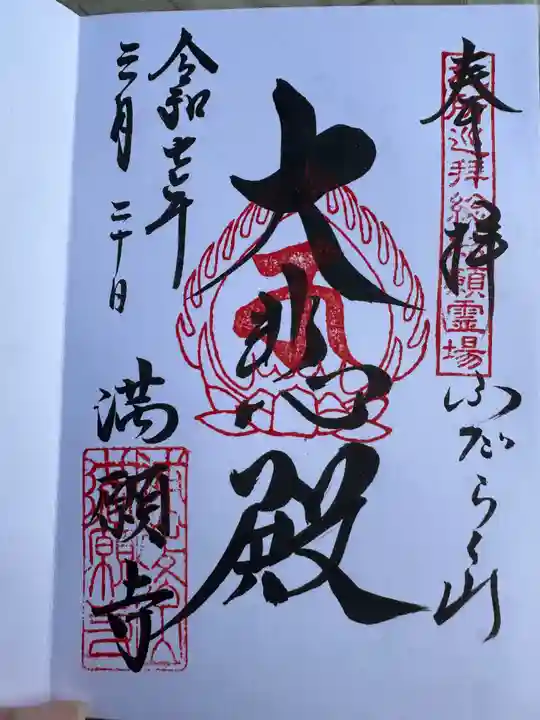 奉拝
巡拝総願霊場
ふだらく山
大悲殿
令和七年
三月二十日
満願寺